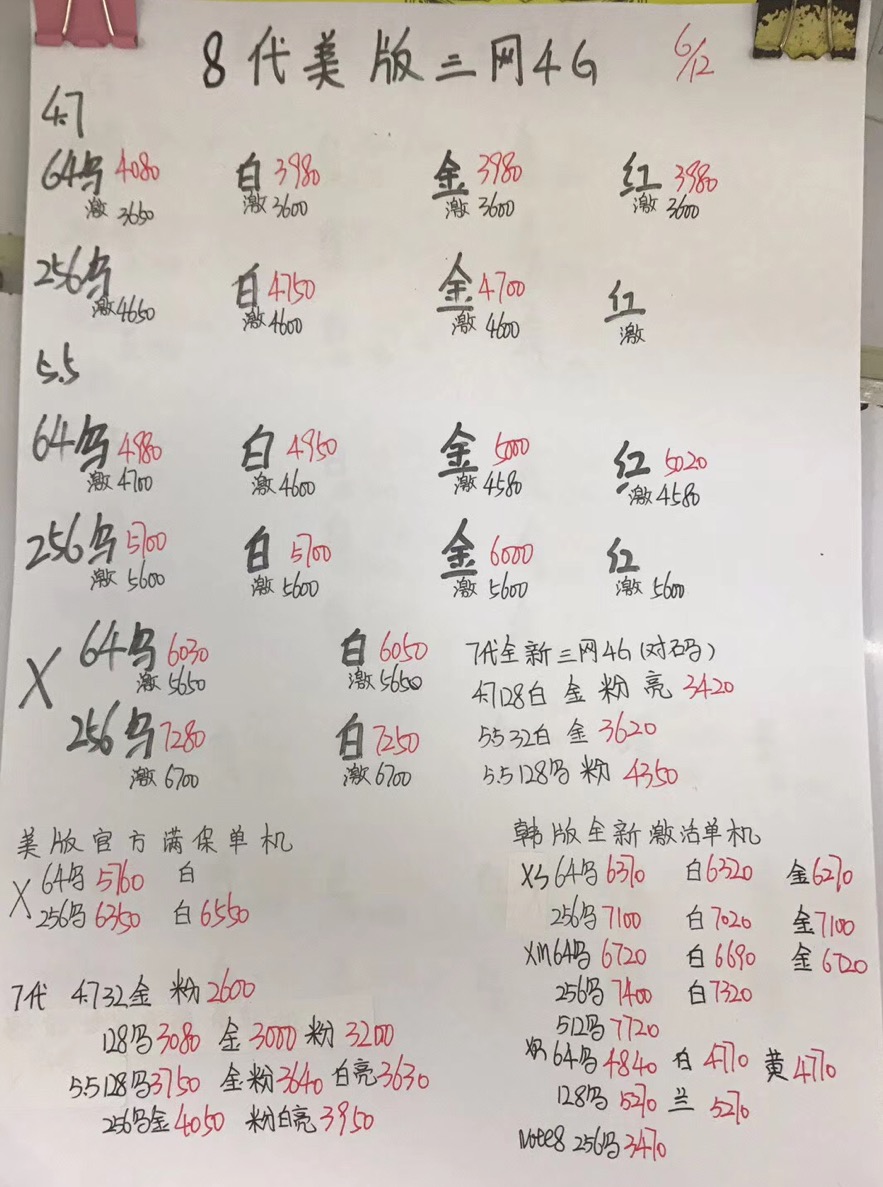 8代美版三网4G 6/12
4.7
64乌 4080 白 3980 金 3980 红 3980
激 3650 激 3600 激 3600 激 3600
256乌 白 4750 金 4700 红
激 4650 激 4600 激 4600 激
5.5
64乌 4980 白 4950 金 5000 红 5020
激 4700 激 4600 激 4580 激 4580
256乌 5700 白 5700 金 6000 红
激 5600 激 5600 激 5600 激 5600
X 64乌 6030 白 6050
激 5650 激 5650
256乌 7280 白 7250
激 6700 激 6700
7代全新三网4G(对码)
4.7 128白 金 粉 亮 3420
5.5 32白 金 3620
5.5 128乌 粉 4350
美版官方满保单机
X 64乌 5760 白
256乌 6350 白 6550
7代 4.7 32金 粉 2600
128乌 3080 金 3000 粉 3200
5.5 128乌 3750 金粉 3640 白亮 3630
256乌金 4050 粉白亮 3950
韩版全新激活单机
XS 64乌 6370 白 6320 金 6270
256乌 7100 白 7020 金 7100
XM 64乌 6720 白 6690 金 6720
256乌 7400 白 7320
512乌 7720
64乌 4840 白 4770 黄 4770
128乌 5270 兰 5270
Note8 256乌 3470